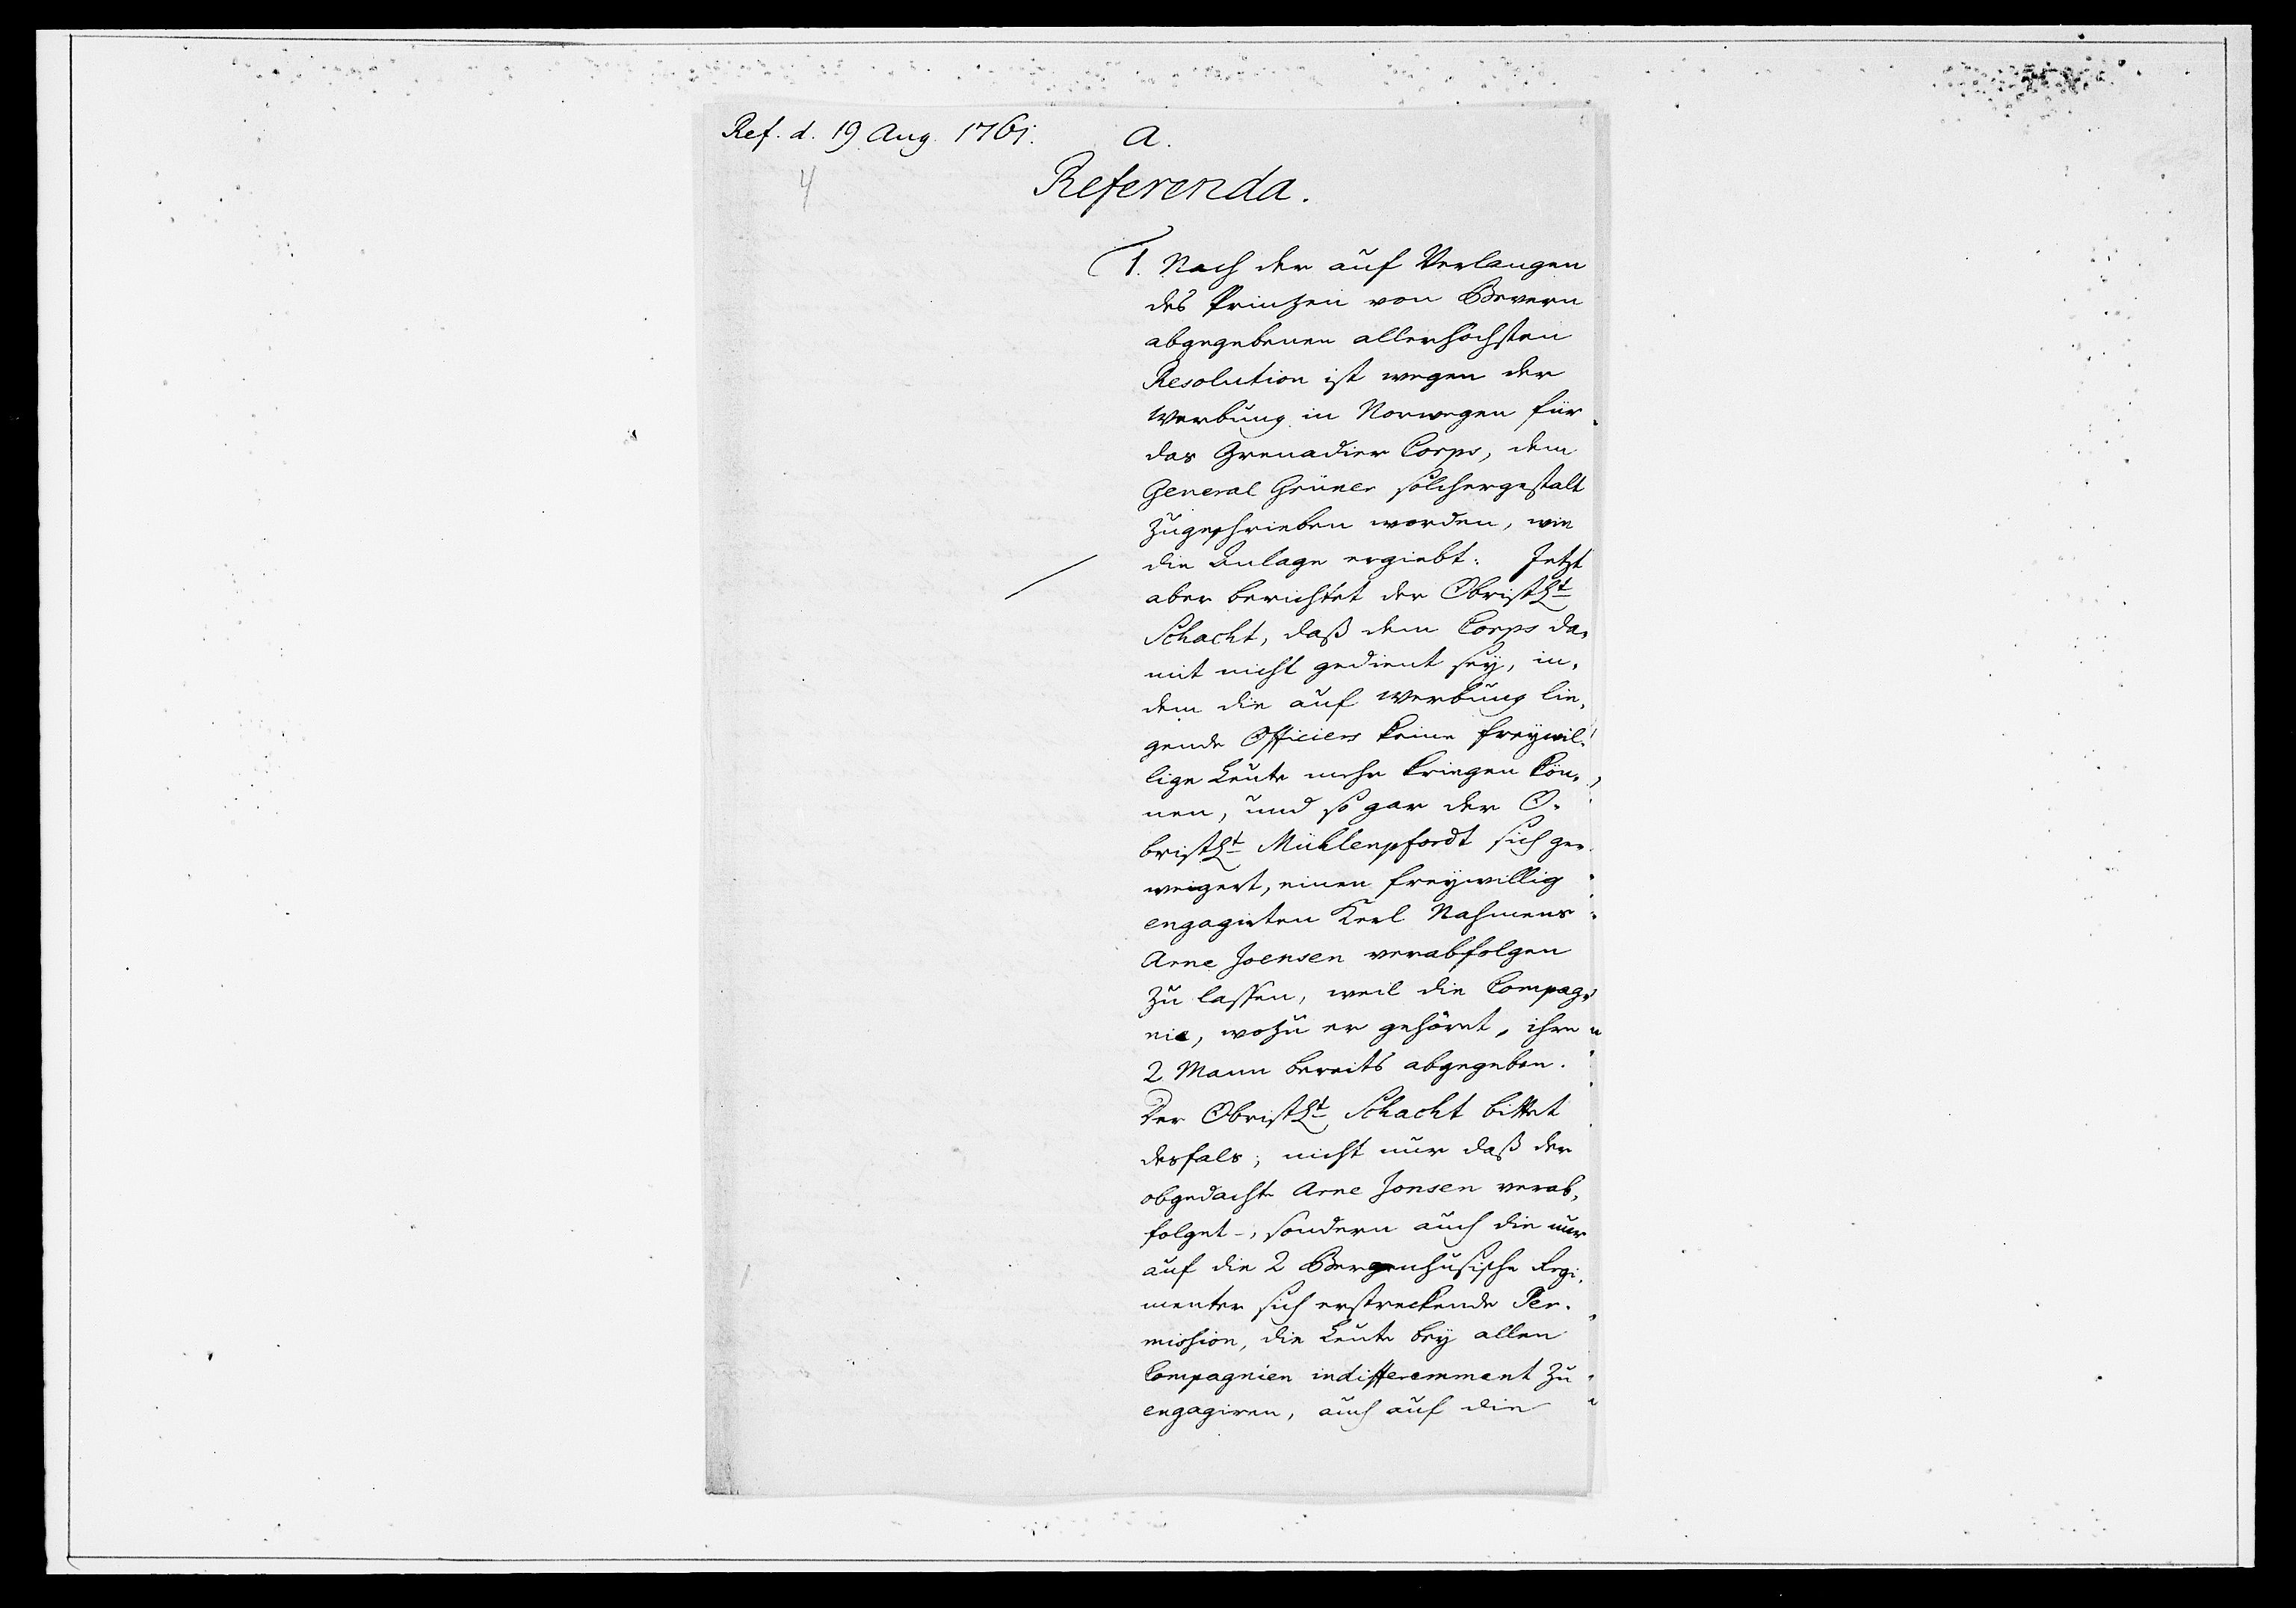 Ref. d. 19 Aug. 1761.
a.
4
Referenda.
1. Nach der auf Verlangen
des Prinzen von Bevern
abgegebenen allerhöchsten
Resolution ist wegen der
Werbung in Norwegen für
das Grenadier Corps, dem
General Grüner solchergestalt
zugeschrieben worden, wie
die Anlage ergiebt. Jetzt
aber berichtet der ObristLt
Schacht, daß dem Corps da-
mit nicht gedient sey, in-
dem die auf Werbung lie-
gende Officiers keine freywil-
lige Leute mehr kriegen kön-
nen, und so gar der O-
bristLt Mühlenpfordt sich ge-
weigert, einen freywillig
engagirten Kerl Nahmens
Arne Joensen verabfolgen
zu lassen, weil die Compag-
nie, wozu er gehöret, ihre
2 Mann bereits abgegeben.
Der ObristLt Schacht bittet
desfals, nicht nur daß der
obgedachte Arne Jonsen verab-
folget-, sondern auch die nur
auf die 2 Bergenhusische Regi-
menter sich erstreckende Per-
mission, die Leute bey allen
Compagnien indifferemment zu
engagiren, auch auf die